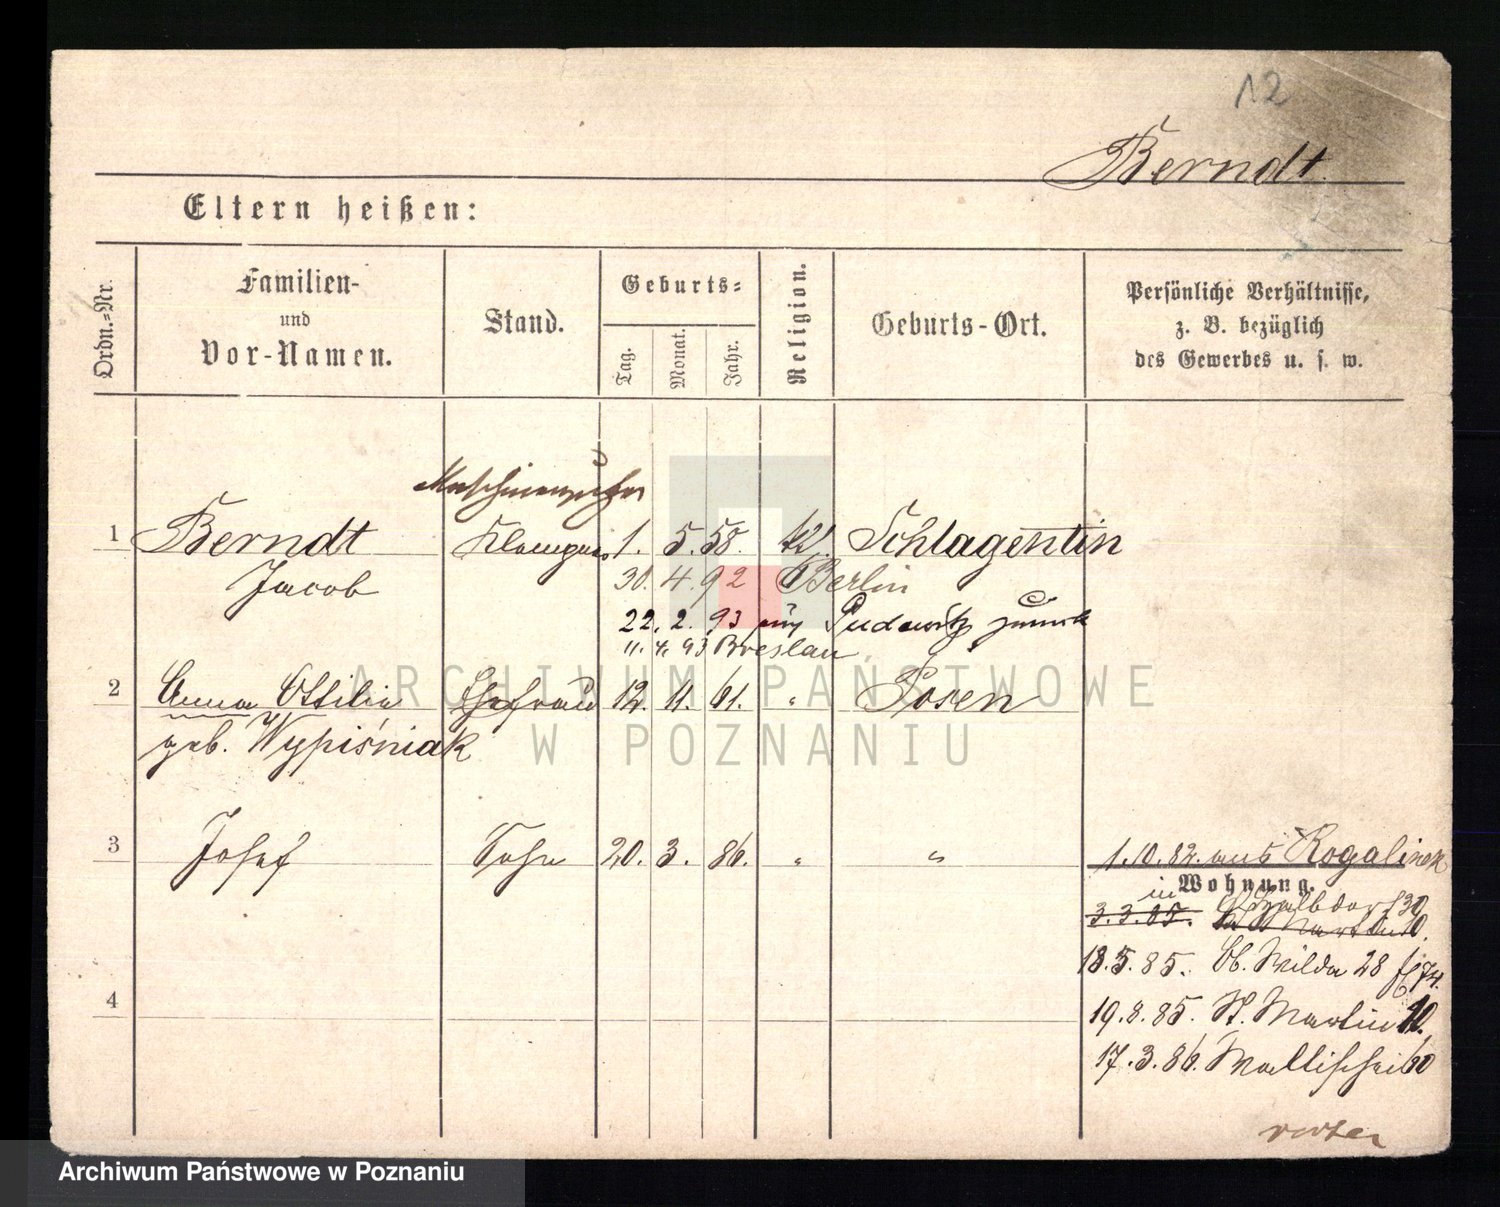 12
Berndt.
Eltern heißen:
Ordn.=Nr.
Familien-
und
Vor-Namen.
Stand.
Geburts=
Tag.
Monat.
Jahr.
Religion.
Geburts-Ort.
Persönliche Verhältnisse,
z. B. bezüglich
des Gewerbes u. s. w.
1 Berndt Klempner 1. 5. 58. Schlagentin
Jacob 30. 4. 92 Berlin
22. 2. 93 Pudewitz zurück
11. 4. 93 Breslau
2 Anna Ottilie Ehefrau 12. 11. 61. " Posen
geb. Wypiśniak
3 Josef Sohn 20. 3. 86. " "
1.10.82. aus Rogalinek
Wohnung.
in
3.3.85.
18.5.85. Ob. Wilda 28
4
19.8.85. St. Martin
17.3.86. Wallischei 60
ARCHIWUM PAŃSTWOWE
W POZNANIU
Archiwum Państwowe w Poznaniu